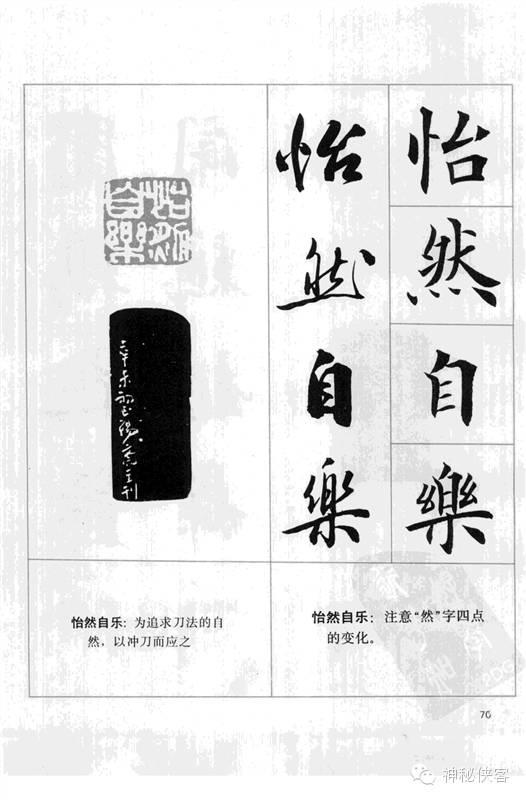 怡然自樂
怡然自樂
怡然自樂
怡然自乐：为追求刀法的自
然，以冲刀而应之
怡然自乐：注意“然”字四点
的变化。
76
神秘侠客